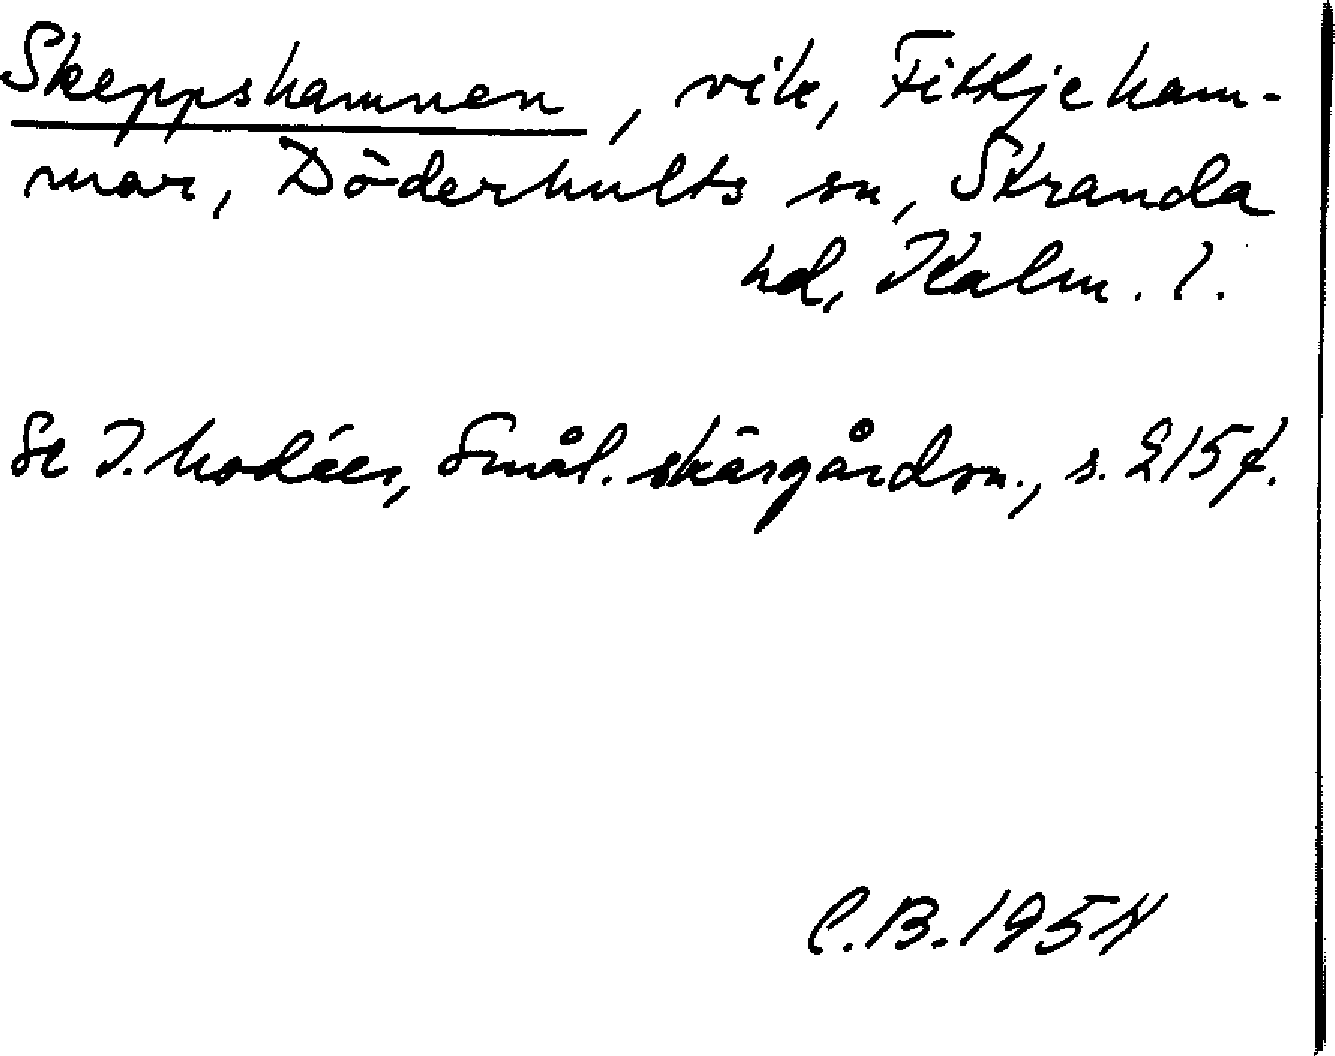 Skeppshamnen, vik, Fittjeham-
mar, Döderhults sn, Stranda
hd, Kalm. l.
Se I. Modéer, Smål. skärgårdsn., s. 215f.
C.B. 1954